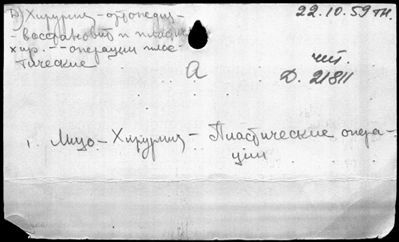 Б) Хирургия – ортопедия –
22.10.59 тн.
– восстановит. и пластич.
хир. – – операции плас-
тические
а
чит.
Д. 21811
1. Лицо – Хирургия – Пластические опера-
ціи